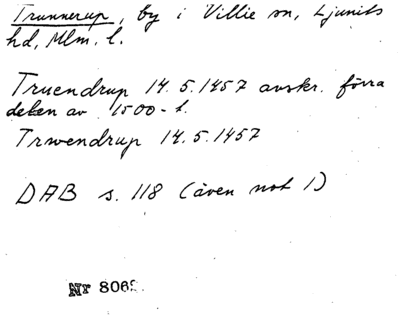 Trunnerup, by i Villie sn, Ljunits
hd, Mlm. l.
Truendrup 14.5.1457 avskr. förra
delen av 1500-t.
Trwendrup 14.5.1457
DAB s. 118 (även not 1)
Nr